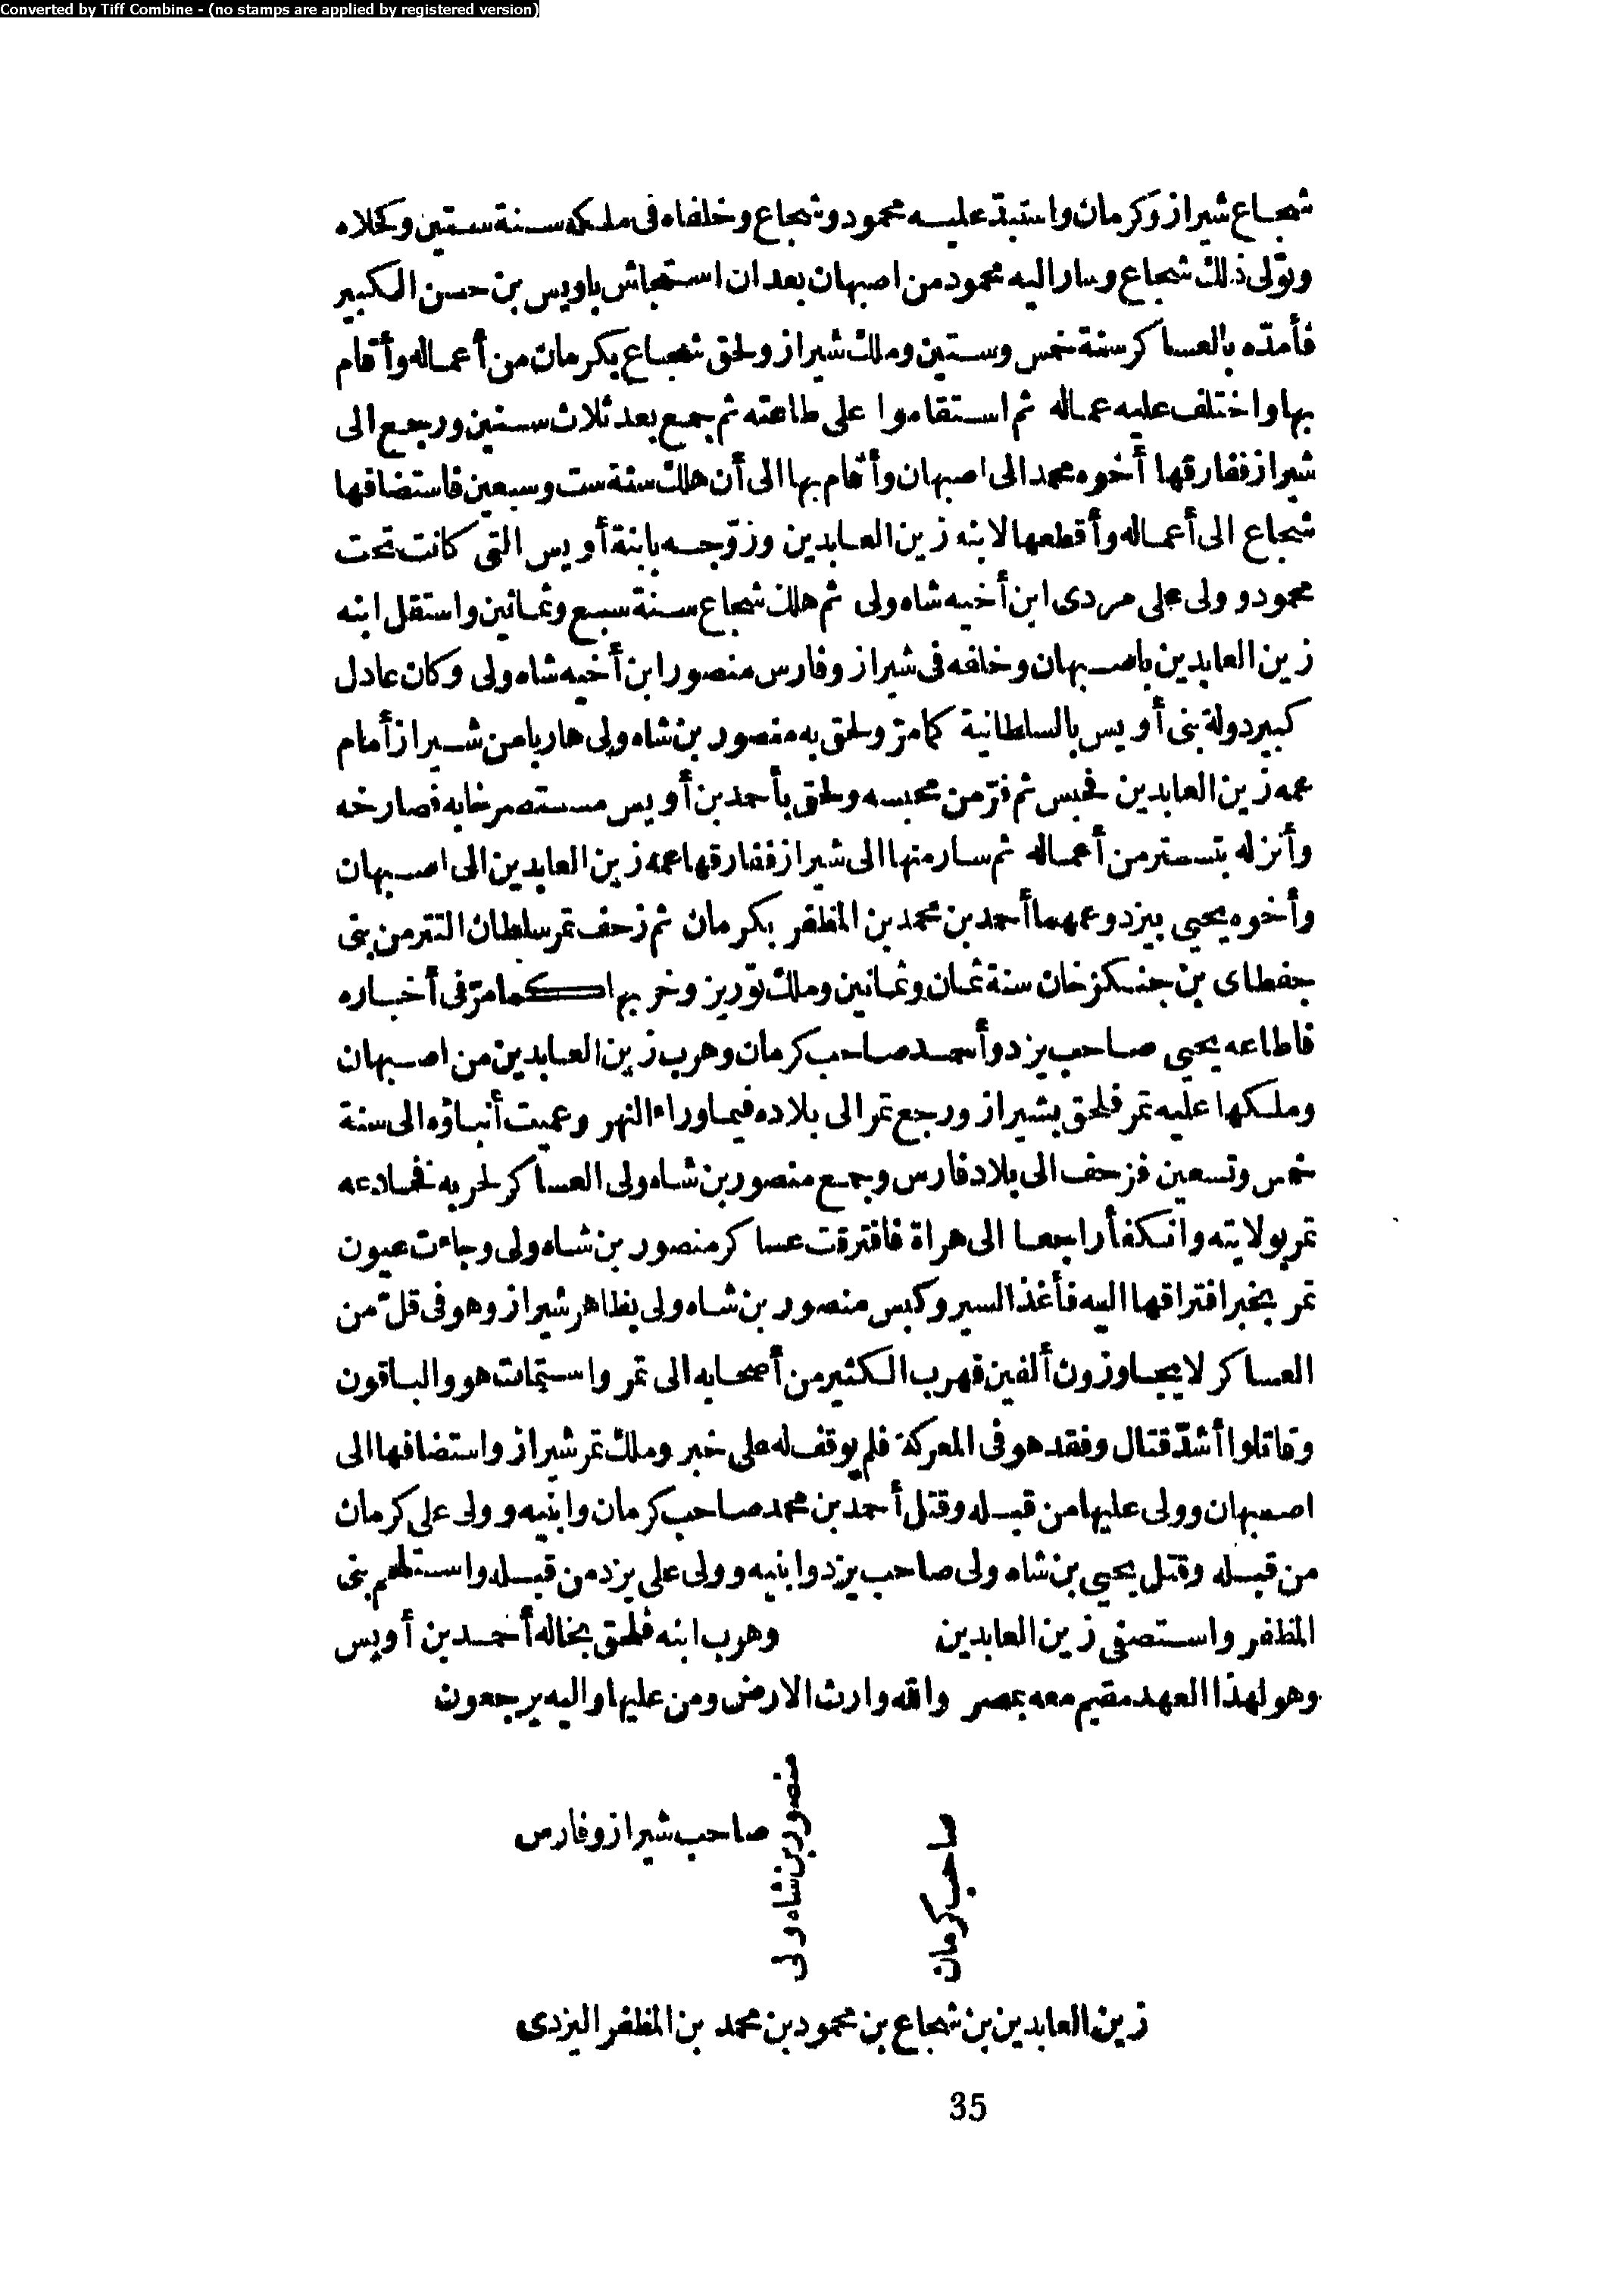 Converted by Tiff Combine - (no stamps are applied by registered version)
شجاع شيراز وكرمان واستبدّ عليه محمود وشجاع وخلفاه فى ملكه سنة ستين وكحلاه
وتولى ذلك شجاع وسار اليه محمود من اصبهان بعد ان استجاش باويس بن حسن الكبير
فأمدّه بالعساكر سنة خمس وستين وملك شيراز ولحق شجاع بكرمان من أعماله وأقام
بها واختلف عليه عماله ثم استقاموا على طاعته ثم جمع بعد ثلاث سنين ورجع الى
شيراز ففارقها أخوه محمد الى اصبهان وأقام بها الى أن هلك سنة ست وسبعين فاستضافها
شجاع الى أعماله وأقطعها لابنه زين العابدين وزوّجه بابنة أويس التى كانت تحت
محمود وولى على مردى ابن أخيه شاه ولى ثم هلك شجاع سنة سبع وثمانين واستقل ابنه
زين العابدين باصبهان وخلفه فى شيراز وفارس منصور ابن أخيه شاه ولى وكان عادل
كبير دولة بنى أويس بالسلطانية كمامرّ ولحق به منصور بن شاه ولى هاربا من شيراز أمام
عمه زين العابدين فحبس ثم فرّ من محبسه ولحق بأحمد بن أويس مستصرخا به فصارخه
وأنزله بتستر من أعماله ثم سار منها الى شيراز ففارقها عمه زين العابدين الى اصبهان
وأخوه يحيى بيزد وعمهما أحمد بن محمد بن المظفر بكرمان ثم زحف تمر سلطان التتر من بنى
جفطاى بن جنكزخان سنة ثمان وثمانين وملك توريز وخربها كمامرّ فى أخباره
فاطاعه يحيى صاحب يزد وأحمد صاحب كرمان وهرب زين العابدين من اصبهان
وملكها عليه تمر فلحق بشيراز ورجع تمر الى بلاده فيما وراء النهر وعميت أنباؤه الى سنة
خمس وتسعين فزحف الى بلاد فارس وجمع منصور بن شاه ولى العساكر لحربه فخادعه
تمر بولايته وانكفأ راجعا الى هراة فافترقت عساكر منصور بن شاه ولى وجاءت عيون
تمر بخبر افتراقها اليه فأغذ السير وكبس منصور بن شاه ولى بظاهر شيراز وهو فى قلّ من
العساكر لا يجاوزون ألفين فهرب الكثير من أصحابه الى تمر واستمات هو والباقون
وقاتلوا أشدّ قتال وفقد هو فى المعركة فلم يوقف له على خبر وملك تمر شيراز واستضافها الى
اصبهان وولى عليها من قبله وقتل أحمد بن محمد صاحب كرمان وابنيه وولى على كرمان
من قبله وقتل يحيى بن شاه ولى صاحب يزد وابنيه وولى على يزد من قبله واستلحم بنى
المظفر واستصفى زين العابدين وهرب ابنه فلحق بخاله أحمد بن أويس
وهو لهذا العهد مقيم معه بمصر والله وارث الارض ومن عليها واليه يرجعون
صاحب كرمان
منصور بن شاه ولى
صاحب شيراز وفارس
زين العابدين بن شجاع بن محمود بن محمد بن المظفر اليزدى
35